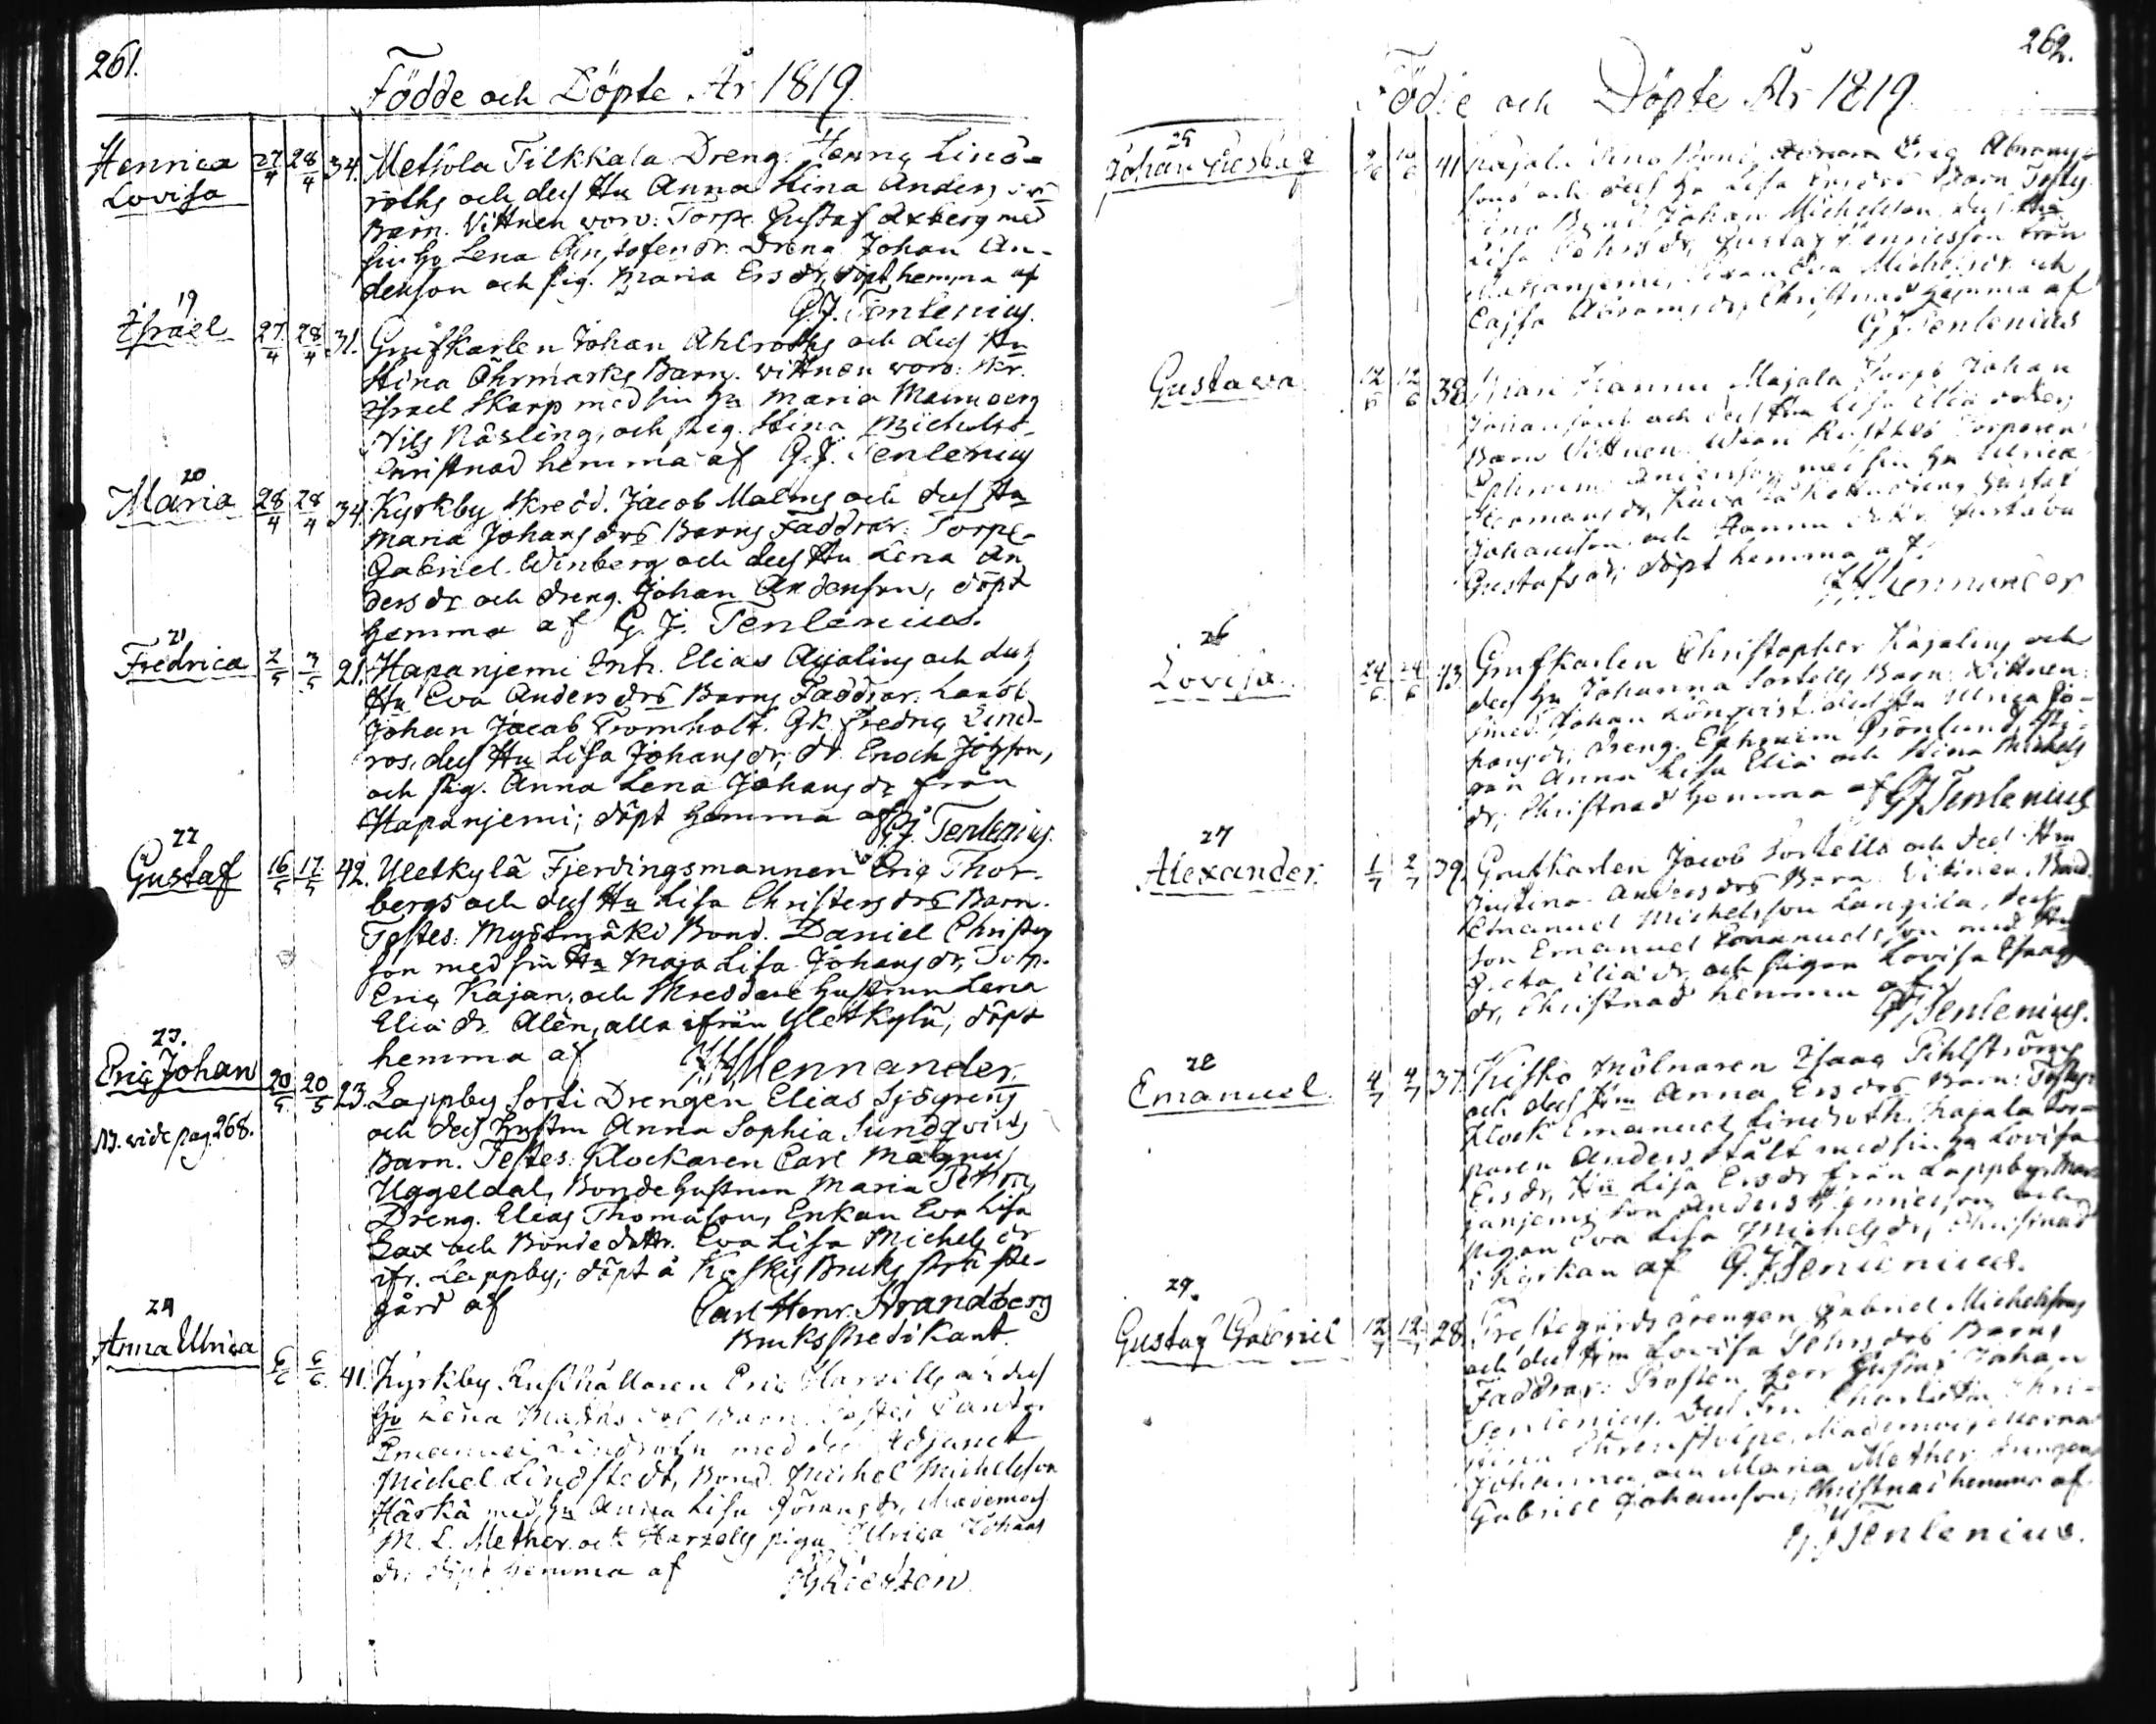 261.
Födde och Döpte År 1819.
Henrica Lovisa 27/4 28/4 34. Metsola Tilkkala Dreng. Henric Lind-
roths och des Hu Anna Stina Anders drs
Barn. Vittnen woro: Torpe. Gustaf Axberg med
sin Hu Lena dr. Dreng Johan An-
dersson och pig. Maria Ers dr, döpt hemma af
G.J. Tenlenius.
19
Israel 27/4 28/4 31. Grufkarlen Johan Ahlroths och des Hu
Stina Öhrmarks Barn. vittnen woro:
Israel Skarp med sin Hu Maria
Nils Näsling, och pig. Stina Michels d.
Christnad hemma af G.J. Tenlenius
20
Maria 28/4 28/4 34. Kyrkby Skredd. Jacob Malms och des Hu
Maria Johans drs Barns Faddrar: Torpe.
Gabriel Winberg och des Hu Lena An
ders dr och dreng. Johan Andersson, döpt
hemma af G. J. Tenlenius.
21
Fredrica 2/5 3/5 21. Hapanjemi Inh. Elias och des
Hu Eva Anders drs Barns Faddrar:
Johan Jacob Tromholt. Gk. Fredric Lind-
ros, des Hu Lisa Johans dr, dr. Enoch
och pig. Anna Lena Johans dr från
Hapanjemi; döpt hemma af
G.J. Tenlenius.
22
Gustaf 16/5 17/5 42. Uletkylä Fjerdingsmannen Eric Thor-
bergs och des Hu Lisa Christers drs Barn.
Testes: Myötmäki Bond. Daniel Christers
son med sin Hu Maja Lisa Johans dr, Torp.
Eric Kajan, och Skreddare hustrun Lena
Elia dr. Alén, alla ifrån Uletkylä, döpt
hemma af Mennander.
23.
Eric Johan 20/5 20/5 23. Lappby Sorti Drengen Elias Sjögrens
N. vide pag. 268.
och des hustru Anna Sophia Sundqvists
Barn. Testes: Klockaren Carl Magnus
Uggeldal, Bonde hustrun Maria
Dreng. Elias Thomasson, Enkan Eva Lisa
Lax och Bonde dottr. Eva Lisa Michels dr
ifr. Lappby; döpt å Koskis Bruks präste-
gård af Carl Henr. Strandberg
Bruks Predikant
24
Anna Ulrica 6/6 6/6 41. Kyrkby Rusthållaren Eric och des
Hu Lena Matts drs Barn. Testes
Emanuel Lindroth med Adjunct
Michel Lindstedt, Bond. Michel Michelsson
Härkä med Hu Anna Lisa Görans dr, Mademois
M. L. Mether och piga Ulrica Johans
dr. döpt hemma af
262.
Födde och Döpte År 1819
25
Johan Gustaf 41 Kajala Bond. Eric Abrams-
sons och des Hu Lisa Barn Testes
Bond Johan Michelsson des Hu
Lisa dr, Gustaf Henricsson från
Eva Michels dr och
Cajsa Abrams dr, Christnad hemma af
G J Tenlenius
Gustava 12/6 12/6 38 Majala Torp. Johan
Johanssons och des Hu Lisa Elia doters
Barn Vittnen
Ephraim Andersson, med sin Hu Ulrica
Hermans dr, Gustaf
Johansson och Gustava
Gustafs dr, döpt hemma af.
Mennander
26
Lovisa 24/6 24/6 43 Grufkarlen Christopher Kajalins och
des Hu Johanna Sortells Barn: Vittnen:
smed. Johan Lönqvist des Hu Ulrica Jo-
hans dr, Dreng. Ephraim Grönlund, pi-
gan Anna Lisa Elia och Stina Michels
dr, Christnad hemma af G J Tenlenius
27
Alexander 1/7 2/7 39. Grufkarlen Jacob Sortells och des Hu
Justina Anders drs Barn. Vittnen. Bond.
Emanuel Michelsson Langila, des
son Emanuel Emanuelsson med Hu
Elia dr och pigan Lovisa Isaacs
dr, Christnad hemma af
G J Tenlenius.
28
Emanuel 4/7 4/7 37. Kisko Mölnaren Isaac Pihlströms
och des Hu Anna Ers drs Barn: Testes
Klock Emanuel Lindroth, Kajala Tor-
paren Anders Stålt med sin Hu Lovisa
Ers dr, Hu Lisa Ers dr från Lappby,
son Anders Henricsson och
pigan Eva Lisa Michels dr, Christnad
i Kyrkan af G. J Tenlenius.
29.
Gustaf Gabriel 12/7 12/7 28. Prestegårds drengen Gabriel Michelssons
och des Hu Lovisa drs Barns
Faddrar: Prosten Herr Gustaf Johan
Tenlenius. Des Fru Charlotta Chri-
stina Ehrenstolpe, Mademois
Johanna och Maria Mether drengen
Gabriel Johansson; Christnad hemma af
G J Tenlenius.